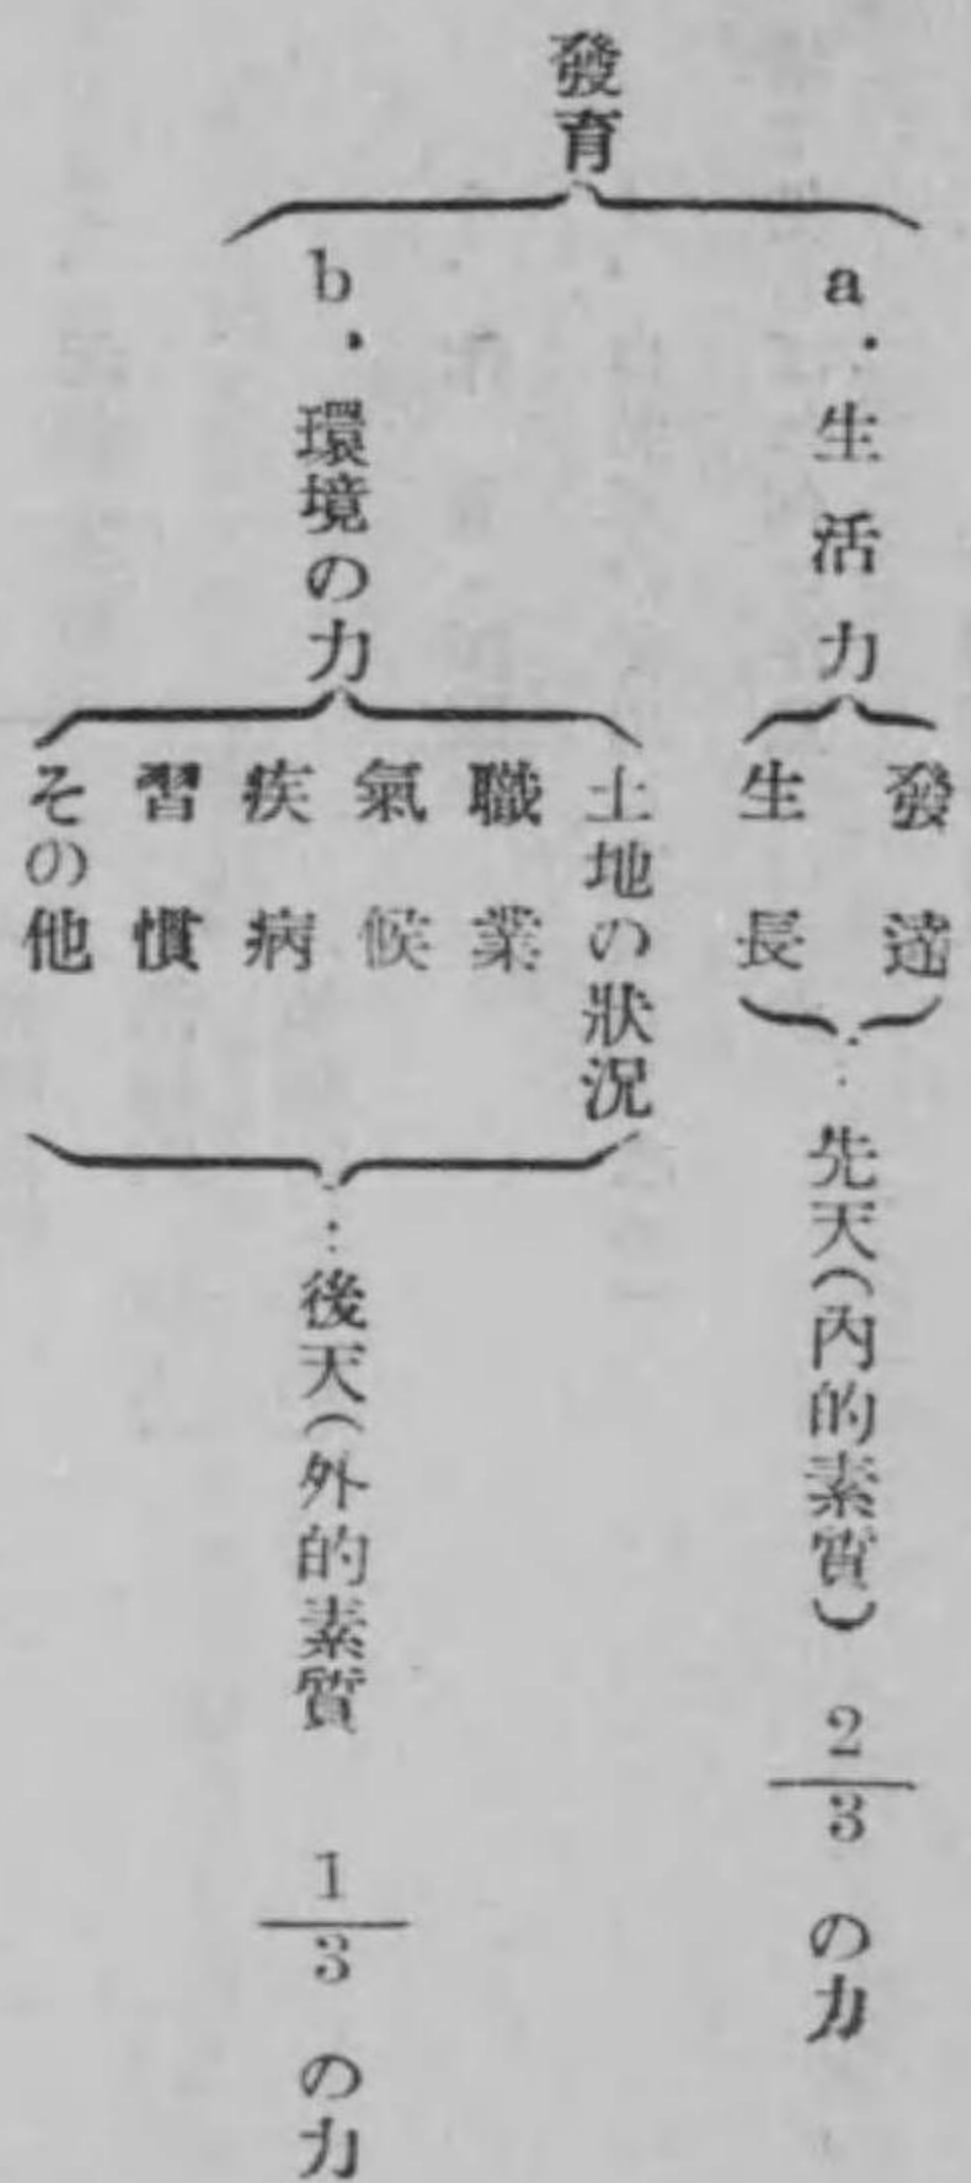 發育
a．生活力
發達
生長
…先天(內的素質) 2/3 の力
b．環境の力
土地の狀況
職業
氣候
疾病
習慣
その他
…後天(外的素質 1/3 の力